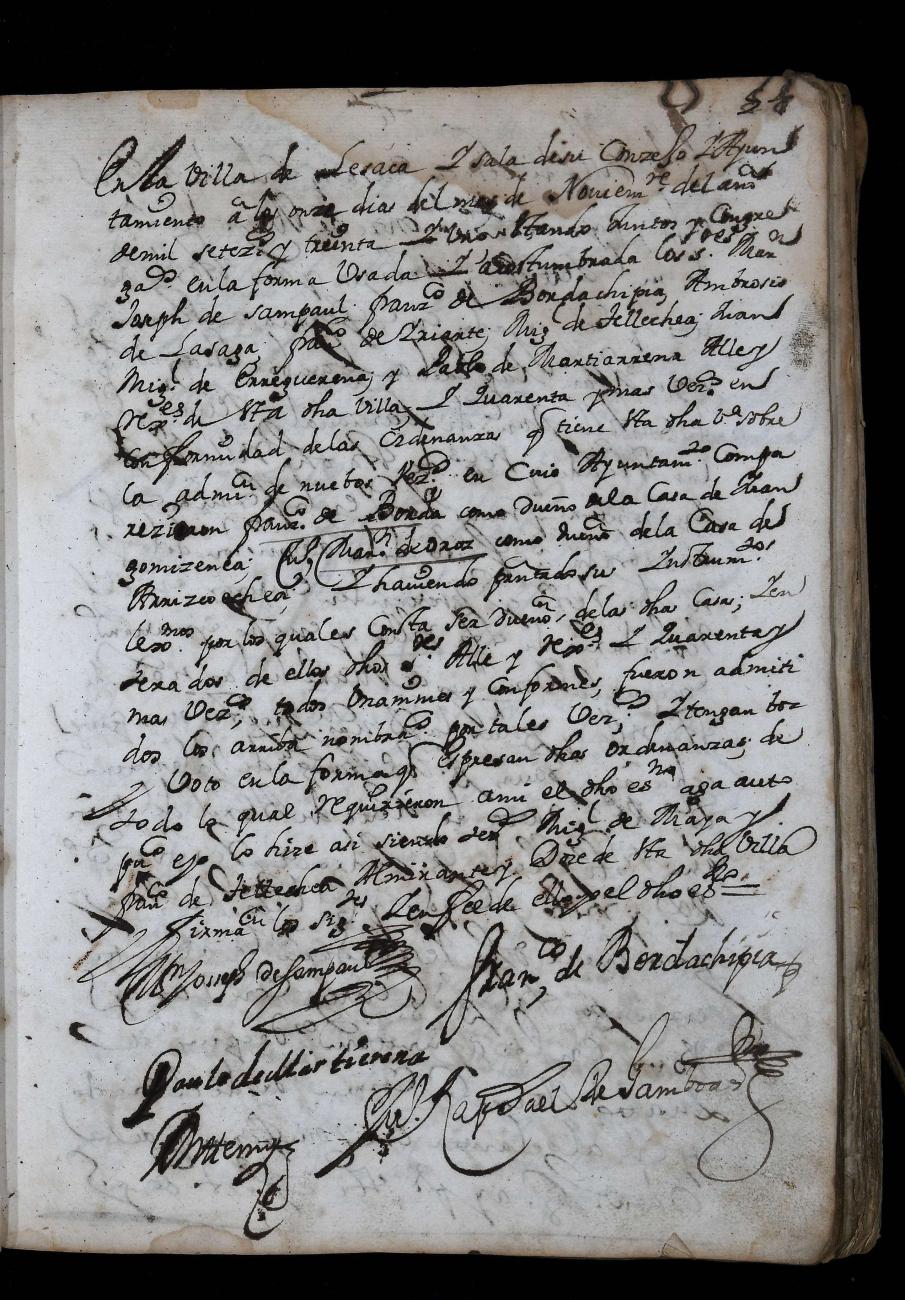 54
En la villa de Lesaca Y sala de su Conzejo Y Ayun
tamiento a los onze dias del mes de Noviem.re del año
de mil setez.s y treinta Y uno stando Juntos y Congre
ga.dos en la forma Usada Y acostumbrada los s.res Mar.n
Joseph de Sampaul fran.co de Bordachipia, Ambrosio
de Lasaga, fra.co de Yriarte, Mig.l de Tellechea, Juan
Mig.l de Errequerena, y Pablo de Martiarrena Alle y
Rex.es de sta dha villa, Y Quarenta y mas Vez.s en
conformidad de las ordenanzas q tiene sta dha v.a sobre
la admi.on de nuebos Vez.os en Cuio Ayuntam.to Compa
rezieron fran.co de Borda como dueño de la Casa de Juan
gomizenea; Mar.n de Oroz como dueño de la Casa de
Arrizeochea; Y haviendo pntado sus Ynstrum.tos
lex.mos por los quales Consta ser dueños de las dhas Casas; Y en
terados de ellos dhos s.res Alle y Rex.es Y Quarenta y
mas Vez.os, todos Unanimes y Conformes, fueron admiti
dos los arriba nombra.dos por tales Vez.os, Y tengan boz
Y Voto en la forma q Espresan dhas ordenanzas; de
todo lo qual requirieron a mi el dho es.no aga auto
pu.co e yo lo hize asi siendo tes.os Mig.l de Maya y
fran.co de Tellechea Almirantes Y Dze de sta dha Villa
firma.on los sig.tes Y en fee de ello yo el dho es.no =
M.n Joseph de Sampaul
Fran.co de Bordachipia
Paulo de Martierena
Raphael de Gamboa
Ante mi